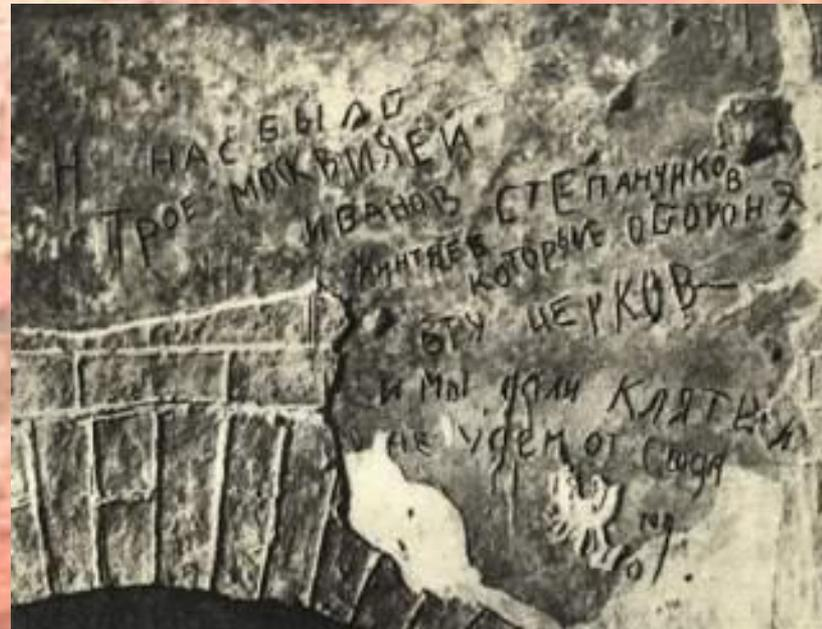 Н НАС БЫЛО
ТРОЕ МОСКВИЧЕЙ
ИВАНОВ СТЕПАНЧИКОВ
ЖИНТЯЕВ КОТОРЫЕ ОБОРОНЯ
ЭТУ ЦЕРКОВ
И МЫ ДАЛИ КЛЯТВ
НЕ УДЕМ ОТ СЮДА